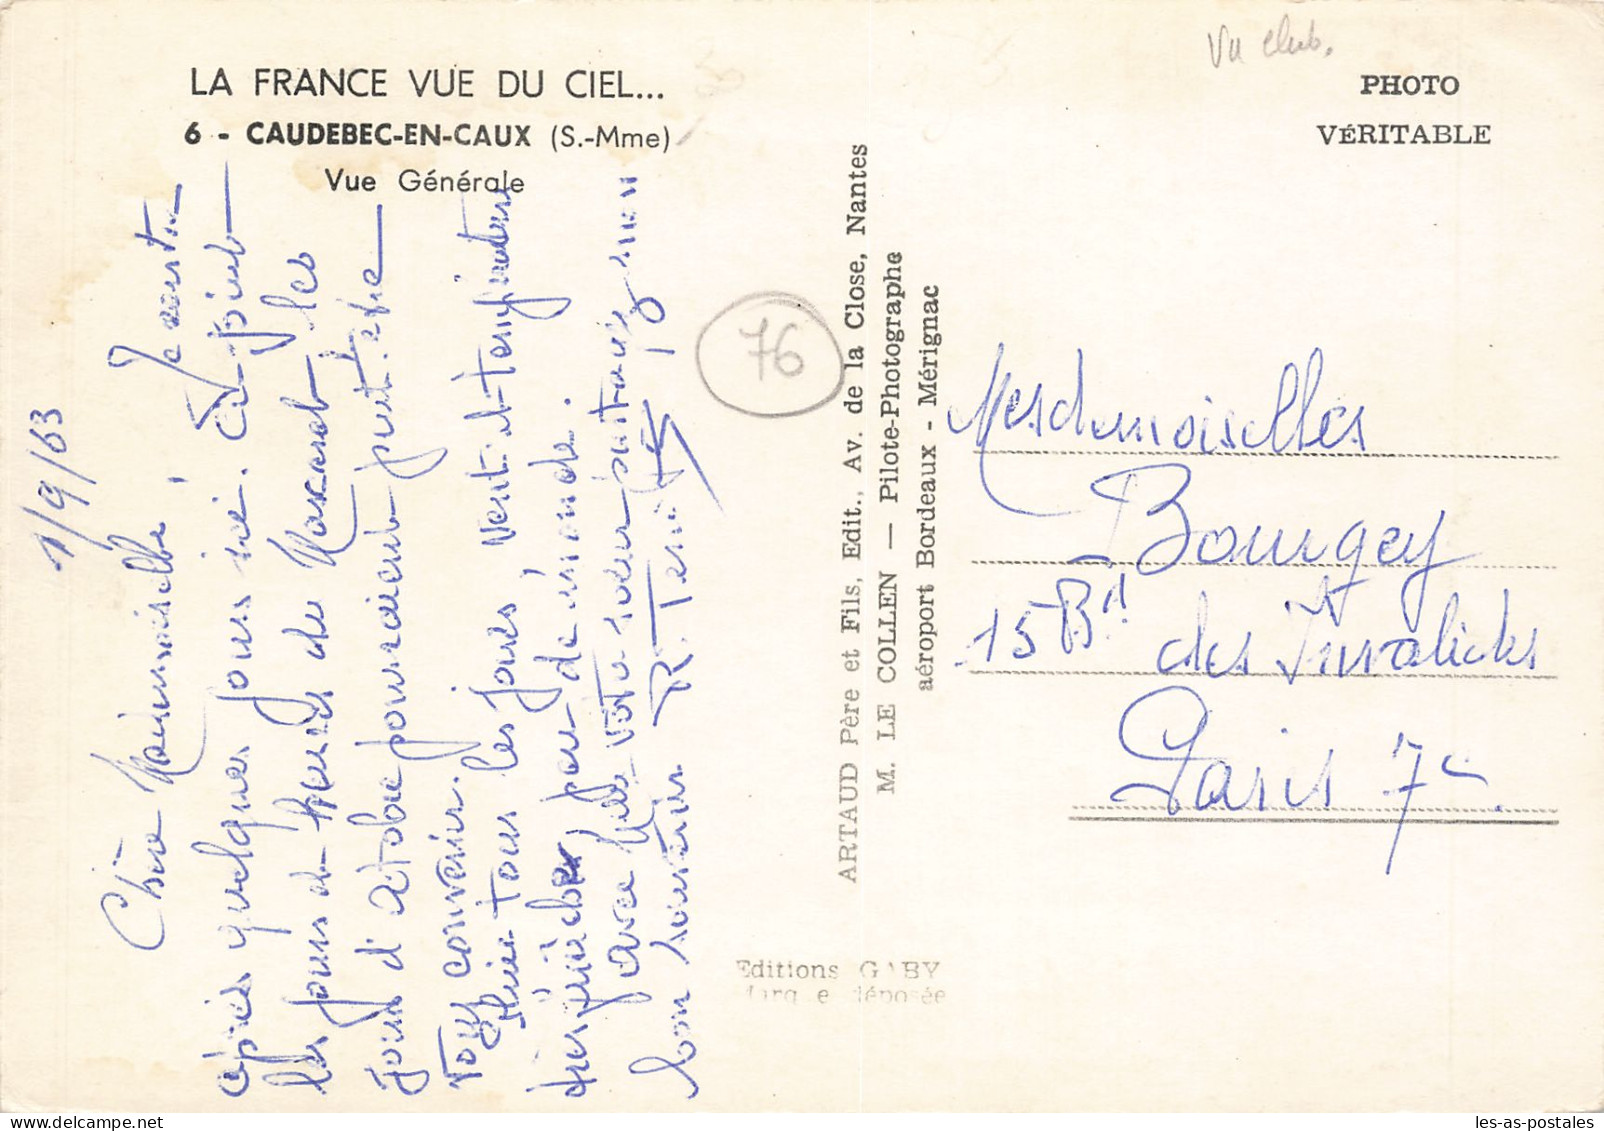 Vu club.
LA FRANCE VUE DU CIEL...
6 - CAUDEBEC-EN-CAUX (S.-Mme)
Vue Générale
1/9/63
Chère Mademoiselle, Je rentre
après quelques jours ici. Ci-joint
les jours et heures du Mascaret les
jours d'octobre pourraient peut-être
vous convenir.
Pluie tous les jours, vent et température
pour de monde.
avec votre soeur
bon souvenir
76
ARTAUD Père et Fils, Edit., Av. de la Close, Nantes
M. LE COLLEN — Pilote-Photographe
aéroport Bordeaux - Mérignac
Editions GABY
Marque déposée
PHOTO
VÉRITABLE
Mesdemoiselles
Bourgey
15 Bd des Invalides
Paris 7e
les-as-postales